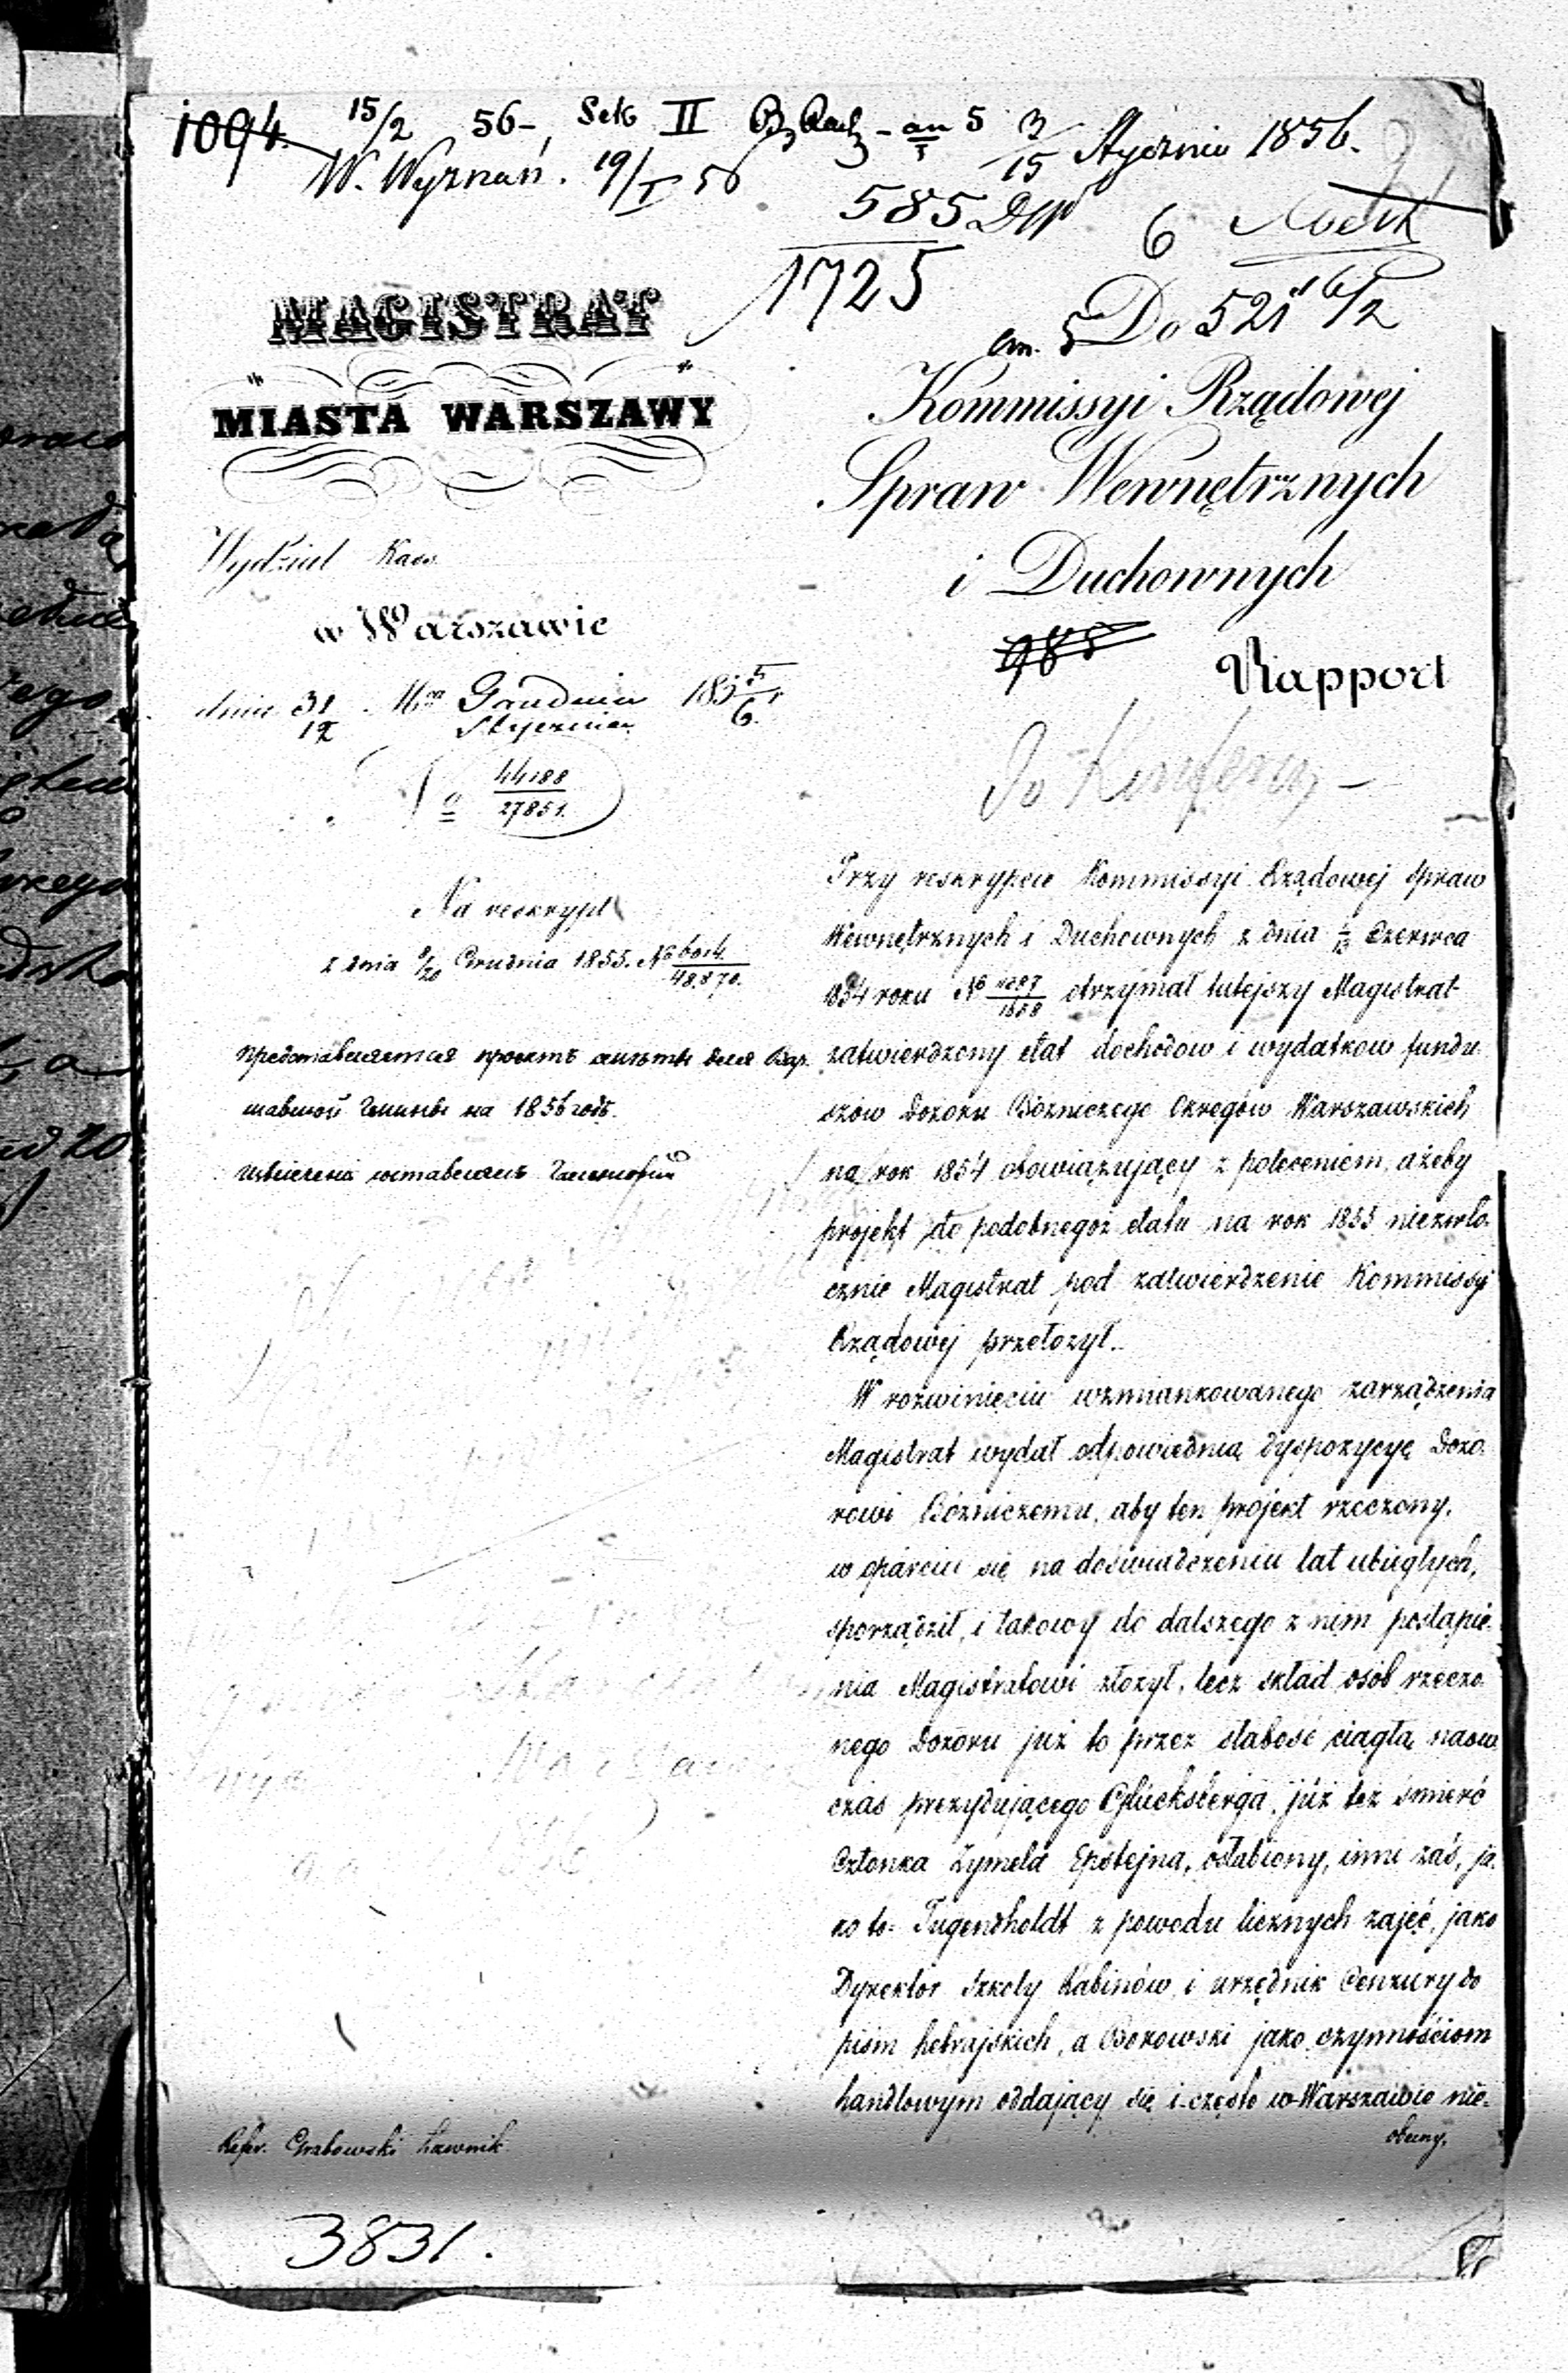 1094. 15/2 56 – Sek II
an 5 3/15 Stycznia 1856.
W. Wyznań. 19/I 56
585
1725
6
Do 521 16/2
MAGISTRAT
MIASTA WARSZAWY
Wydział Kass
w Warszawie
dnia 31/12 Mca Grudnia/Stycznia 1855/6.
44188/27851.
Na reskrypt
z dnia 8/20 Grudnia 1855. No 48,870.
представляется проектъ смѣты для Вар.
шавской Гмины на 1856 годъ.
Refer. Grabowski Ławnik
3831.
Do
Kommissyi Rządowej
Spraw Wewnętrznych
i Duchownych
985
Rapport
Przy reskrypcie Kommissyi Rządowej Spraw
Wewnętrznych i Duchownych z dnia 1/13 Czerwca
1854 roku No otrzymał tutejszy Magistrat
zatwierdzony etat dochodow i wydatkow fundu
szow Dozoru Bózniczego Okręgów Warszawskich
na rok 1854 obowiązujący z poleceniem, ażeby
projekt do podobnegoż etatu na rok 1855 niezwło.
cznie Magistrat pod zatwierdzenie Kommissyi
Rządowej przełożył.
W rozwinięciu wzmiankowanego zarządzenia
Magistrat wydał odpowiednią dyspozycyę Dozo.
rowi Bózniczemu, aby ten projekt rzeczony,
w oparciu się na doświadczeniu lat ubiegłych,
sporządził, i takowy do dalszego z nim postąpie.
nia Magistratowi złożył, lecz skład osób rzeczo
nego Dozoru już to przez słabość ciągłą naów
czas prezydującego Glücksberga, już też śmierć
Członka Zymela Epstejna, osłabiony, inni zaś, ja.
ko to: Tugendholdt z powodu licznych zajęć, jako
Dyrektor Szkoły Rabinów i urzędnik Cenzury do
pism hebrajskich, a Borowski jako czynnościom
handlowym oddający się i często w Warszawie nie.
obecny,